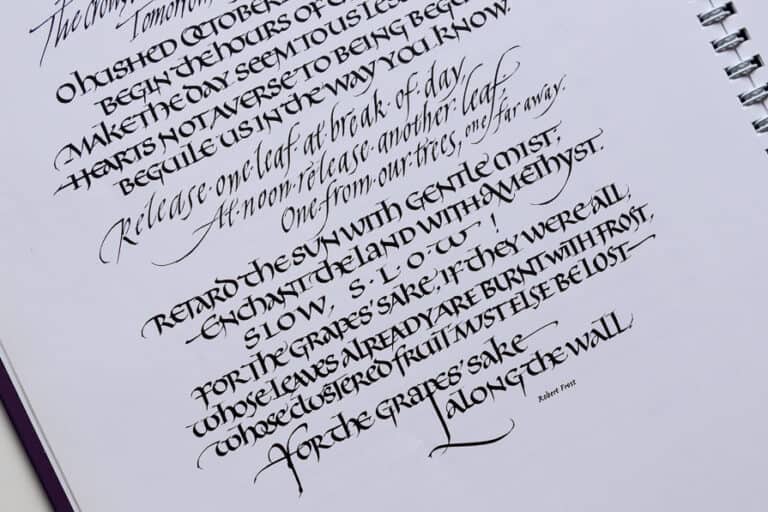 The crows
Tomorrow
O HUSHED OCTOBER
BEGIN THE HOURS OF
MAKE THE DAY SEEM TO US LESS
HEARTS NOT AVERSE TO BEING BEGUI
BEGUILE US IN THE WAY YOU KNOW.
Release one leaf at break of day,
At noon release another leaf,
One from our trees, one far away.
RETARD THE SUN WITH GENTLE MIST;
ENCHANT THE LAND WITH AMETHYST.
SLOW, S·L·O·W !
FOR THE GRAPES' SAKE, IF THEY WERE ALL,
WHOSE LEAVES ALREADY ARE BURNT WITH FROST,
WHOSE CLUSTERED FRUIT MUST ELSE BE LOST—
FOR THE GRAPES' SAKE
ALONG THE WALL.
Robert Frost